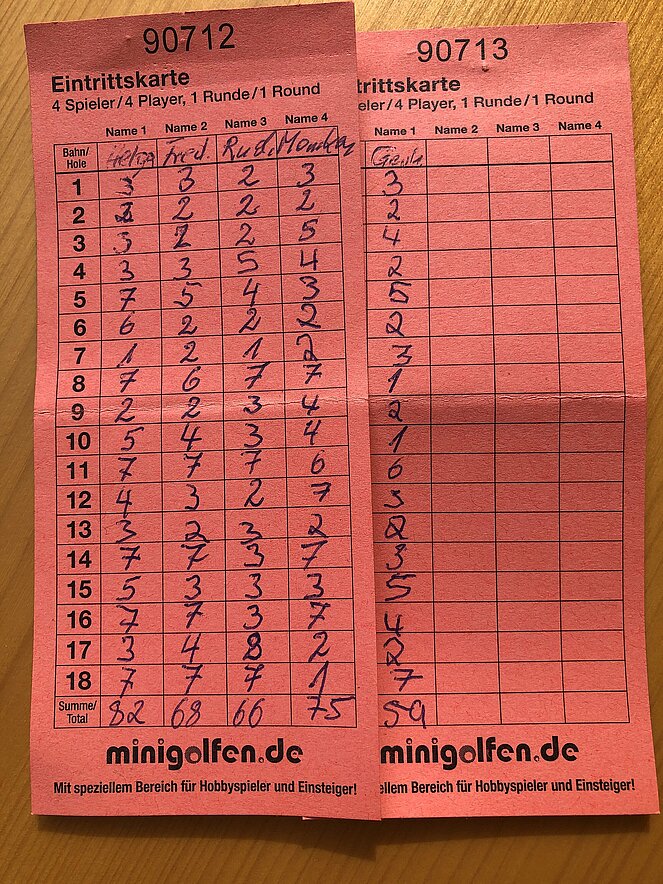 90712
Eintrittskarte
4 Spieler/4 Player, 1 Runde/1 Round
Name 1 Name 2 Name 3 Name 4
Bahn/Hole Helga Fred. Rudi
1 3 3 2 3
2 2 2 2 2
3 3 2 2 5
4 3 3 5 4
5 7 5 4 3
6 6 2 2 2
7 1 2 1 2
8 7 6 7 7
9 2 2 3 4
10 5 4 3 4
11 7 7 7 6
12 4 3 2 7
13 3 2 3 2
14 7 7 3 7
15 5 3 3 3
16 7 7 3 7
17 3 4 8 2
18 7 7 7 1
Summe/Total 82 68 66 75
minigolfen.de
Mit speziellem Bereich für Hobbyspieler und Einsteiger!
90713
trittskarte
eler/4 Player, 1 Runde/1 Round
Name 1 Name 2 Name 3 Name 4
3
2
4
2
5
2
3
1
2
1
6
3
2
3
5
4
2
7
59
minigolfen.de
ellem Bereich für Hobbyspieler und Einsteiger!